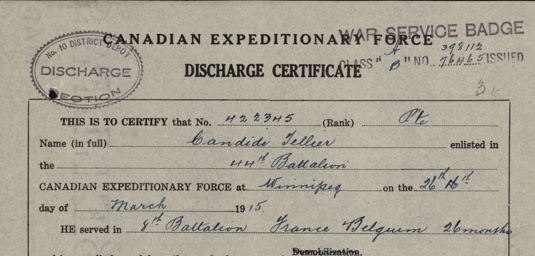 No. 10 DISTRICT DEPOT
DISCHARGE
SECTION
CANADIAN EXPEDITIONARY FORCE
WAR SERVICE BADGE
CLASS "A" 398112
"B" NO. 76465 ISSUED
DISCHARGE CERTIFICATE
THIS IS TO CERTIFY that No. 422345 (Rank) Pte
Name (in full) Candide Tellier enlisted in
the 44th Battalion
CANADIAN EXPEDITIONARY FORCE at Winnipeg on the 26th 16th
day of March 1915.
HE served in 8th Battalion France Belguim 26 months
Demobilization.